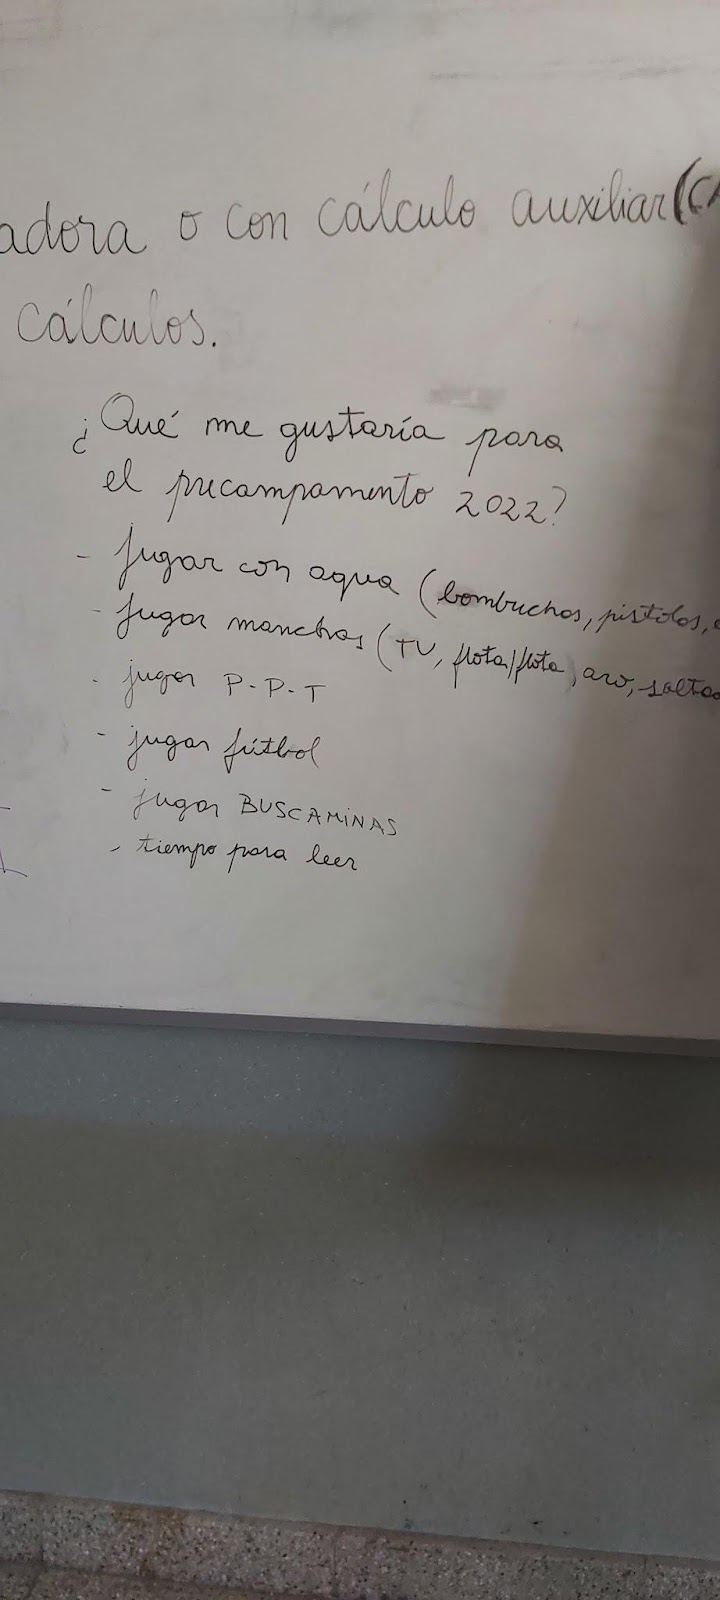 adora o con cálculo auxiliar (CA
cálculos.
¿Qué me gustaría para
el precampamento 2022?
- Jugar con agua (bombuchas, pistolas,
- Jugar manchas (TV, flota/flota, aro, salta
- jugar P-P-T
- jugar fútbol
- jugar BUSCAMINAS
- tiempo para leer